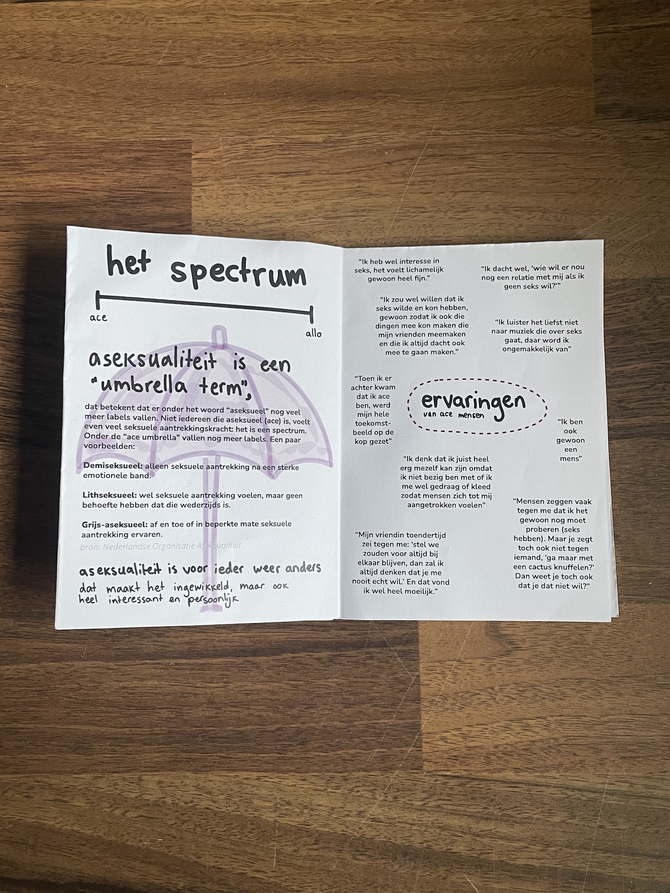 het spectrum
ace
allo
aseksualiteit is een
"umbrella term",
dat betekent dat er onder het woord "aseksueel" nog veel
meer labels vallen. Niet iedereen die aseksueel (ace) is, voelt
even veel seksuele aantrekkingskracht: het is een spectrum.
Onder de "ace umbrella" vallen nog meer labels. Een paar
voorbeelden:
Demiseksueel: alleen seksuele aantrekking na een sterke
emotionele band.
Lithseksueel: wel seksuele aantrekking voelen, maar geen
behoefte hebben dat die wederzijds is.
Grijs-aseksueel: af en toe of in beperkte mate seksuele
aantrekking ervaren.
bron: Nederlandse Organisatie Aseksualiteit
aseksualiteit is voor ieder weer anders
dat maakt het ingewikkeld, maar ook
heel interessant en persoonlijk
"Ik heb wel interesse in
seks, het voelt lichamelijk
gewoon heel fijn."
"Ik dacht wel, 'wie wil er nou
nog een relatie met mij als ik
geen seks wil?'"
"Ik zou wel willen dat ik
seks wilde en kon hebben,
gewoon zodat ik ook die
dingen mee kon maken die
mijn vrienden meemaken
en die ik altijd dacht ook
mee te gaan maken."
"Ik luister het liefst niet
naar muziek die over seks
gaat, daar word ik
ongemakkelijk van"
"Toen ik er
achter kwam
dat ik ace
ben, werd
mijn hele
toekomst-
beeld op de
kop gezet"
ervaringen
van ace mensen
"Ik ben
ook
gewoon
een
mens"
"Ik denk dat ik juist heel
erg mezelf kan zijn omdat
ik niet bezig ben met of ik
me wel gedraag of kleed
zodat mensen zich tot mij
aangetrokken voelen"
"Mensen zeggen vaak
tegen me dat ik het
gewoon nog moet
proberen (seks
hebben). Maar je zegt
toch ook niet tegen
iemand, 'ga maar met
een cactus knuffelen?'
Dan weet je toch ook
dat je dat niet wil?"
"Mijn vriendin toendertijd
zei tegen me: 'stel we
zouden voor altijd bij
elkaar blijven, dan zal ik
altijd denken dat je me
nooit echt wil.' En dat vond
ik wel heel moeilijk."